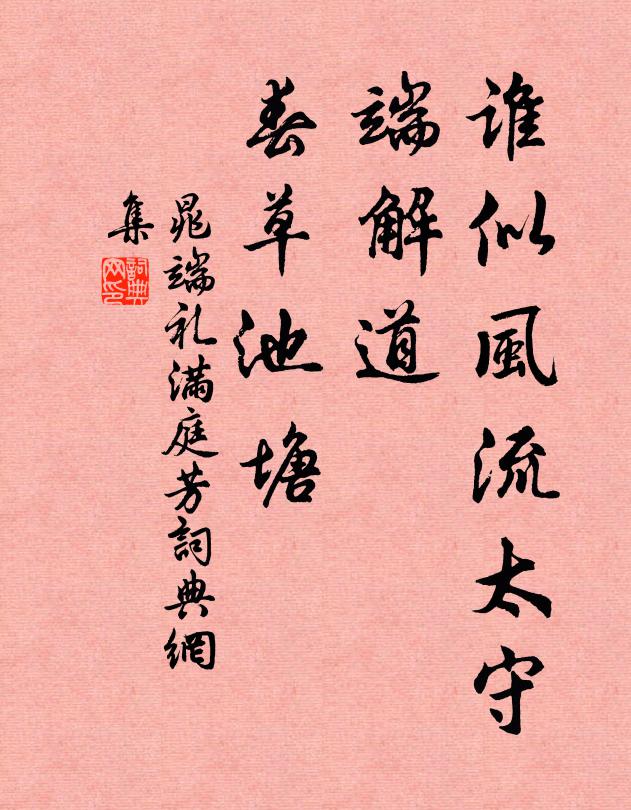 誰似風流太守
端解道
春草池塘
晁端礼滿庭芳詞典網
集
詞典
网印